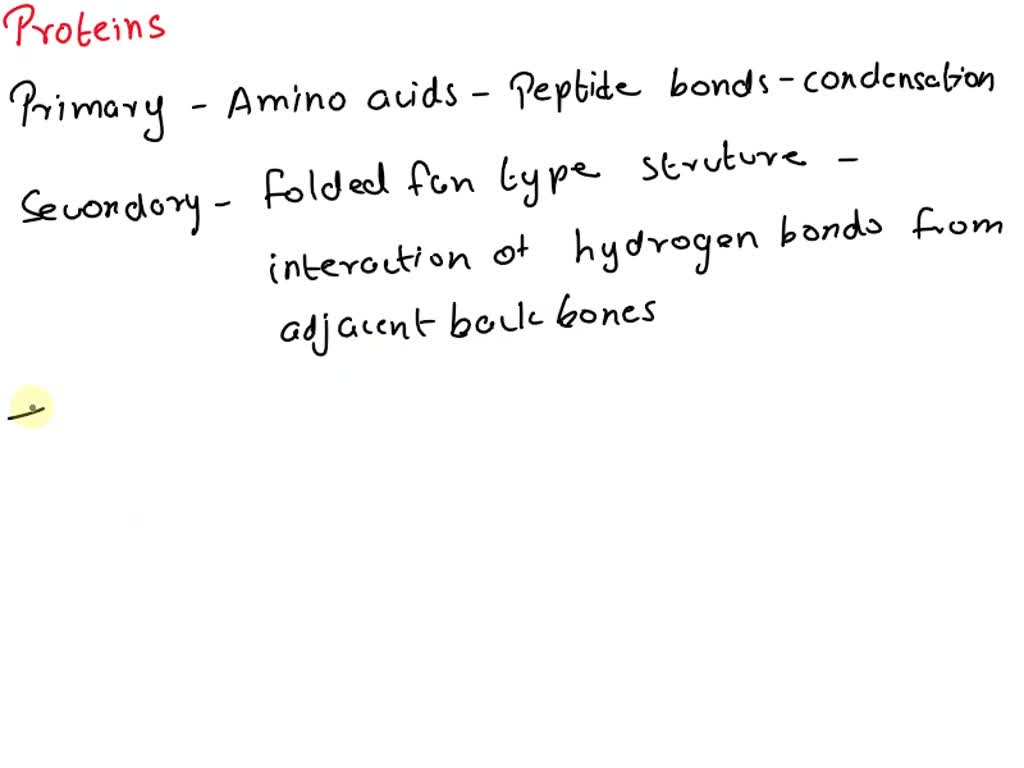 Proteins
Primary - Amino acids - Peptide bonds - condensation
Secondary - Folded fan type struture -
interaction of hydrogen bonds from
adjacent back bones